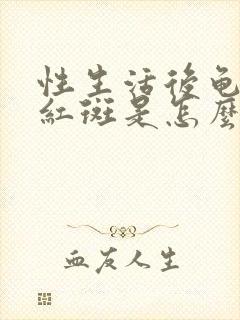 性生活後龟
紅斑是怎麼
血友人生